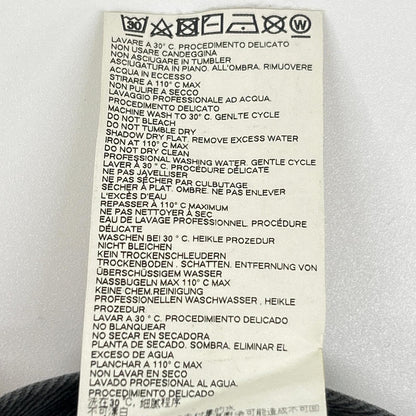 30 W
LAVARE A 30° C. PROCEDIMENTO DELICATO
NON USARE CANDEGGINA
NON ASCIUGARE IN TUMBLER
ASCIUGATURA IN PIANO. ALL'OMBRA. RIMUOVERE
ACQUA IN ECCESSO
STIRARE A 110° C MAX
NON PULIRE A SECCO
LAVAGGIO PROFESSIONALE AD ACQUA.
PROCEDIMENTO DELICATO
MACHINE WASH TO 30° C. GENLTE CYCLE
DO NOT BLEACH
DO NOT TUMBLE DRY
SHADOW DRY FLAT. REMOVE EXCESS WATER
IRON AT 110° C MAX
DO NOT DRY CLEAN
PROFESSIONAL WASHING WATER. GENTLE CYCLE
LAVER À 30° C. PROCÉDURE DÉLICATE
NE PAS JAVELLISER
NE PAS SÉCHER PAR CULBUTAGE
SÉCHER À PLAT. OMBRE. NE PAS ENLEVER
L'EXCÈS D'EAU
REPASSER À 110° C MAXIMUM
NE PAS NETTOYER À SEC
EAU DE LAVAGE PROFESSIONNEL. PROCÉDURE
DÉLICATE
WASCHEN BEI 30° C. HEIKLE PROZEDUR
NICHT BLEICHEN
KEIN TROCKENSCHLEUDERN
TROCKENBODEN. SCHATTEN. ENTFERNUNG VON
ÜBERSCHÜSSIGEM WASSER
NASSBUGELN MAX 110° C MAX
KEINE CHEM.REINIGUNG
PROFESSIONELLEN WASCHWASSER, HEIKLE
PROZEDUR
LAVAR A 30° C. PROCEDIMIENTO DELICADO
NO BLANQUEAR
NO SECAR EN SECADORA
PLANTA DE SECADO. SOMBRA. ELIMINAR EL
EXCESO DE AGUA
PLANCHAR A 110° C MAX
NON LAVAR EN SECO
LAVADO PROFESIONAL AL AGUA.
PROCEDIMIENTO DELICADO
洗在30° C, 细腻程序
不可漂白